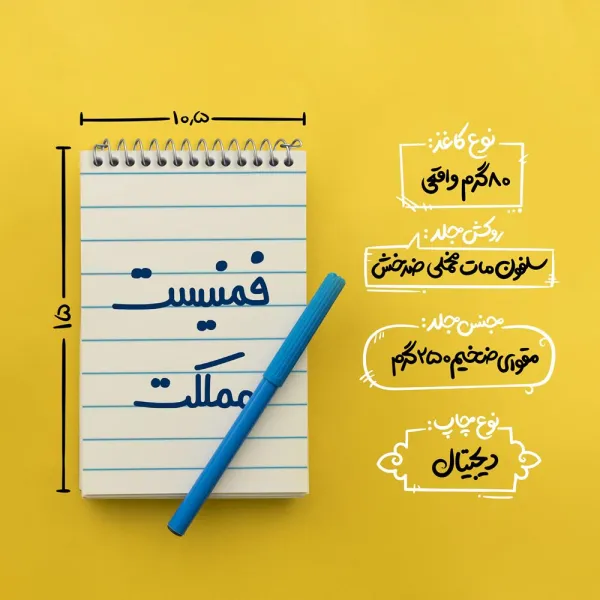 ۱۰٫۵
۱۵
فمنیست
مملکت
نوع کاغذ:
۸۰ گرم واقعی
روکش جلد:
سلفون مات مخملی ضدخش
جنس جلد:
مقوای ضخیم ۲۵۰ گرم
نوع چاپ:
دیجیتال